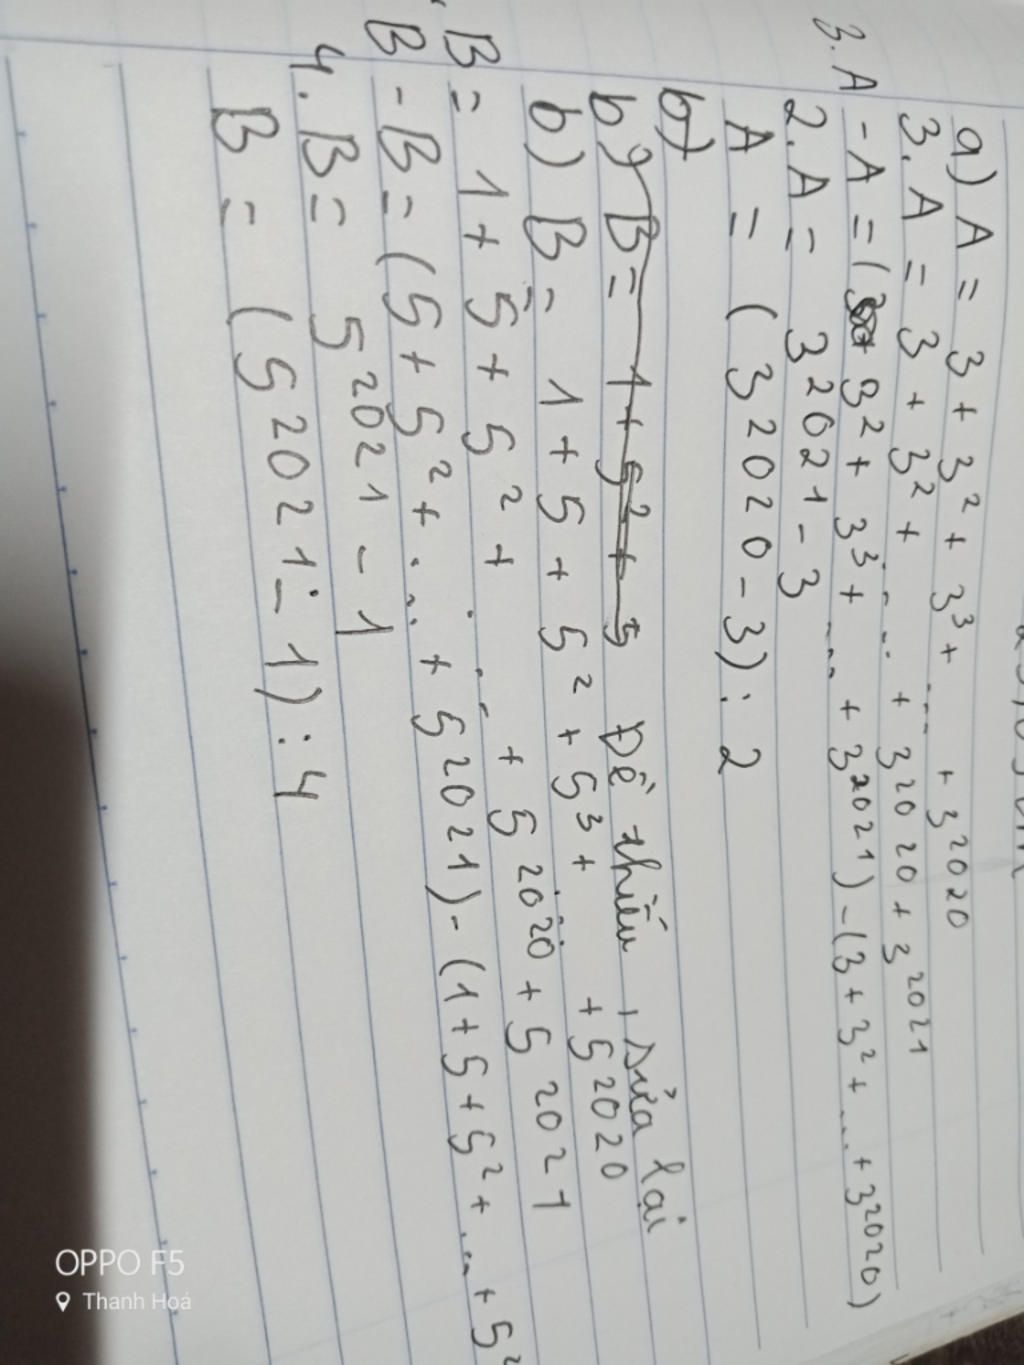 a) A = 3 + 3² + 3³ + .... + 3²⁰²⁰
3.A = 3 + 3² + ..... + 3²⁰²⁰ + 3²⁰²¹
3.A - A = ( 3² + 3³ + .... + 3²⁰²¹) - (3 + 3² + .... + 3²⁰²⁰)
2.A = 3²⁰²¹ - 3
A = ( 3²⁰²⁰ - 3) : 2
b)
b) B = 1 + 5² + 5 Đề thiếu, sửa lại
b) B = 1 + 5 + 5² + 5³ + ..... + 5²⁰²⁰
B = 1 + 5 + 5² + ..... + 5²⁰²⁰ + 5²⁰²¹
B - B = (5 + 5² + .... + 5²⁰²¹) - (1 + 5 + 5² + .... + 5²
4.B = 5²⁰²¹ - 1
B = (5²⁰²¹ - 1) : 4
OPPO F5
Thanh Hoá